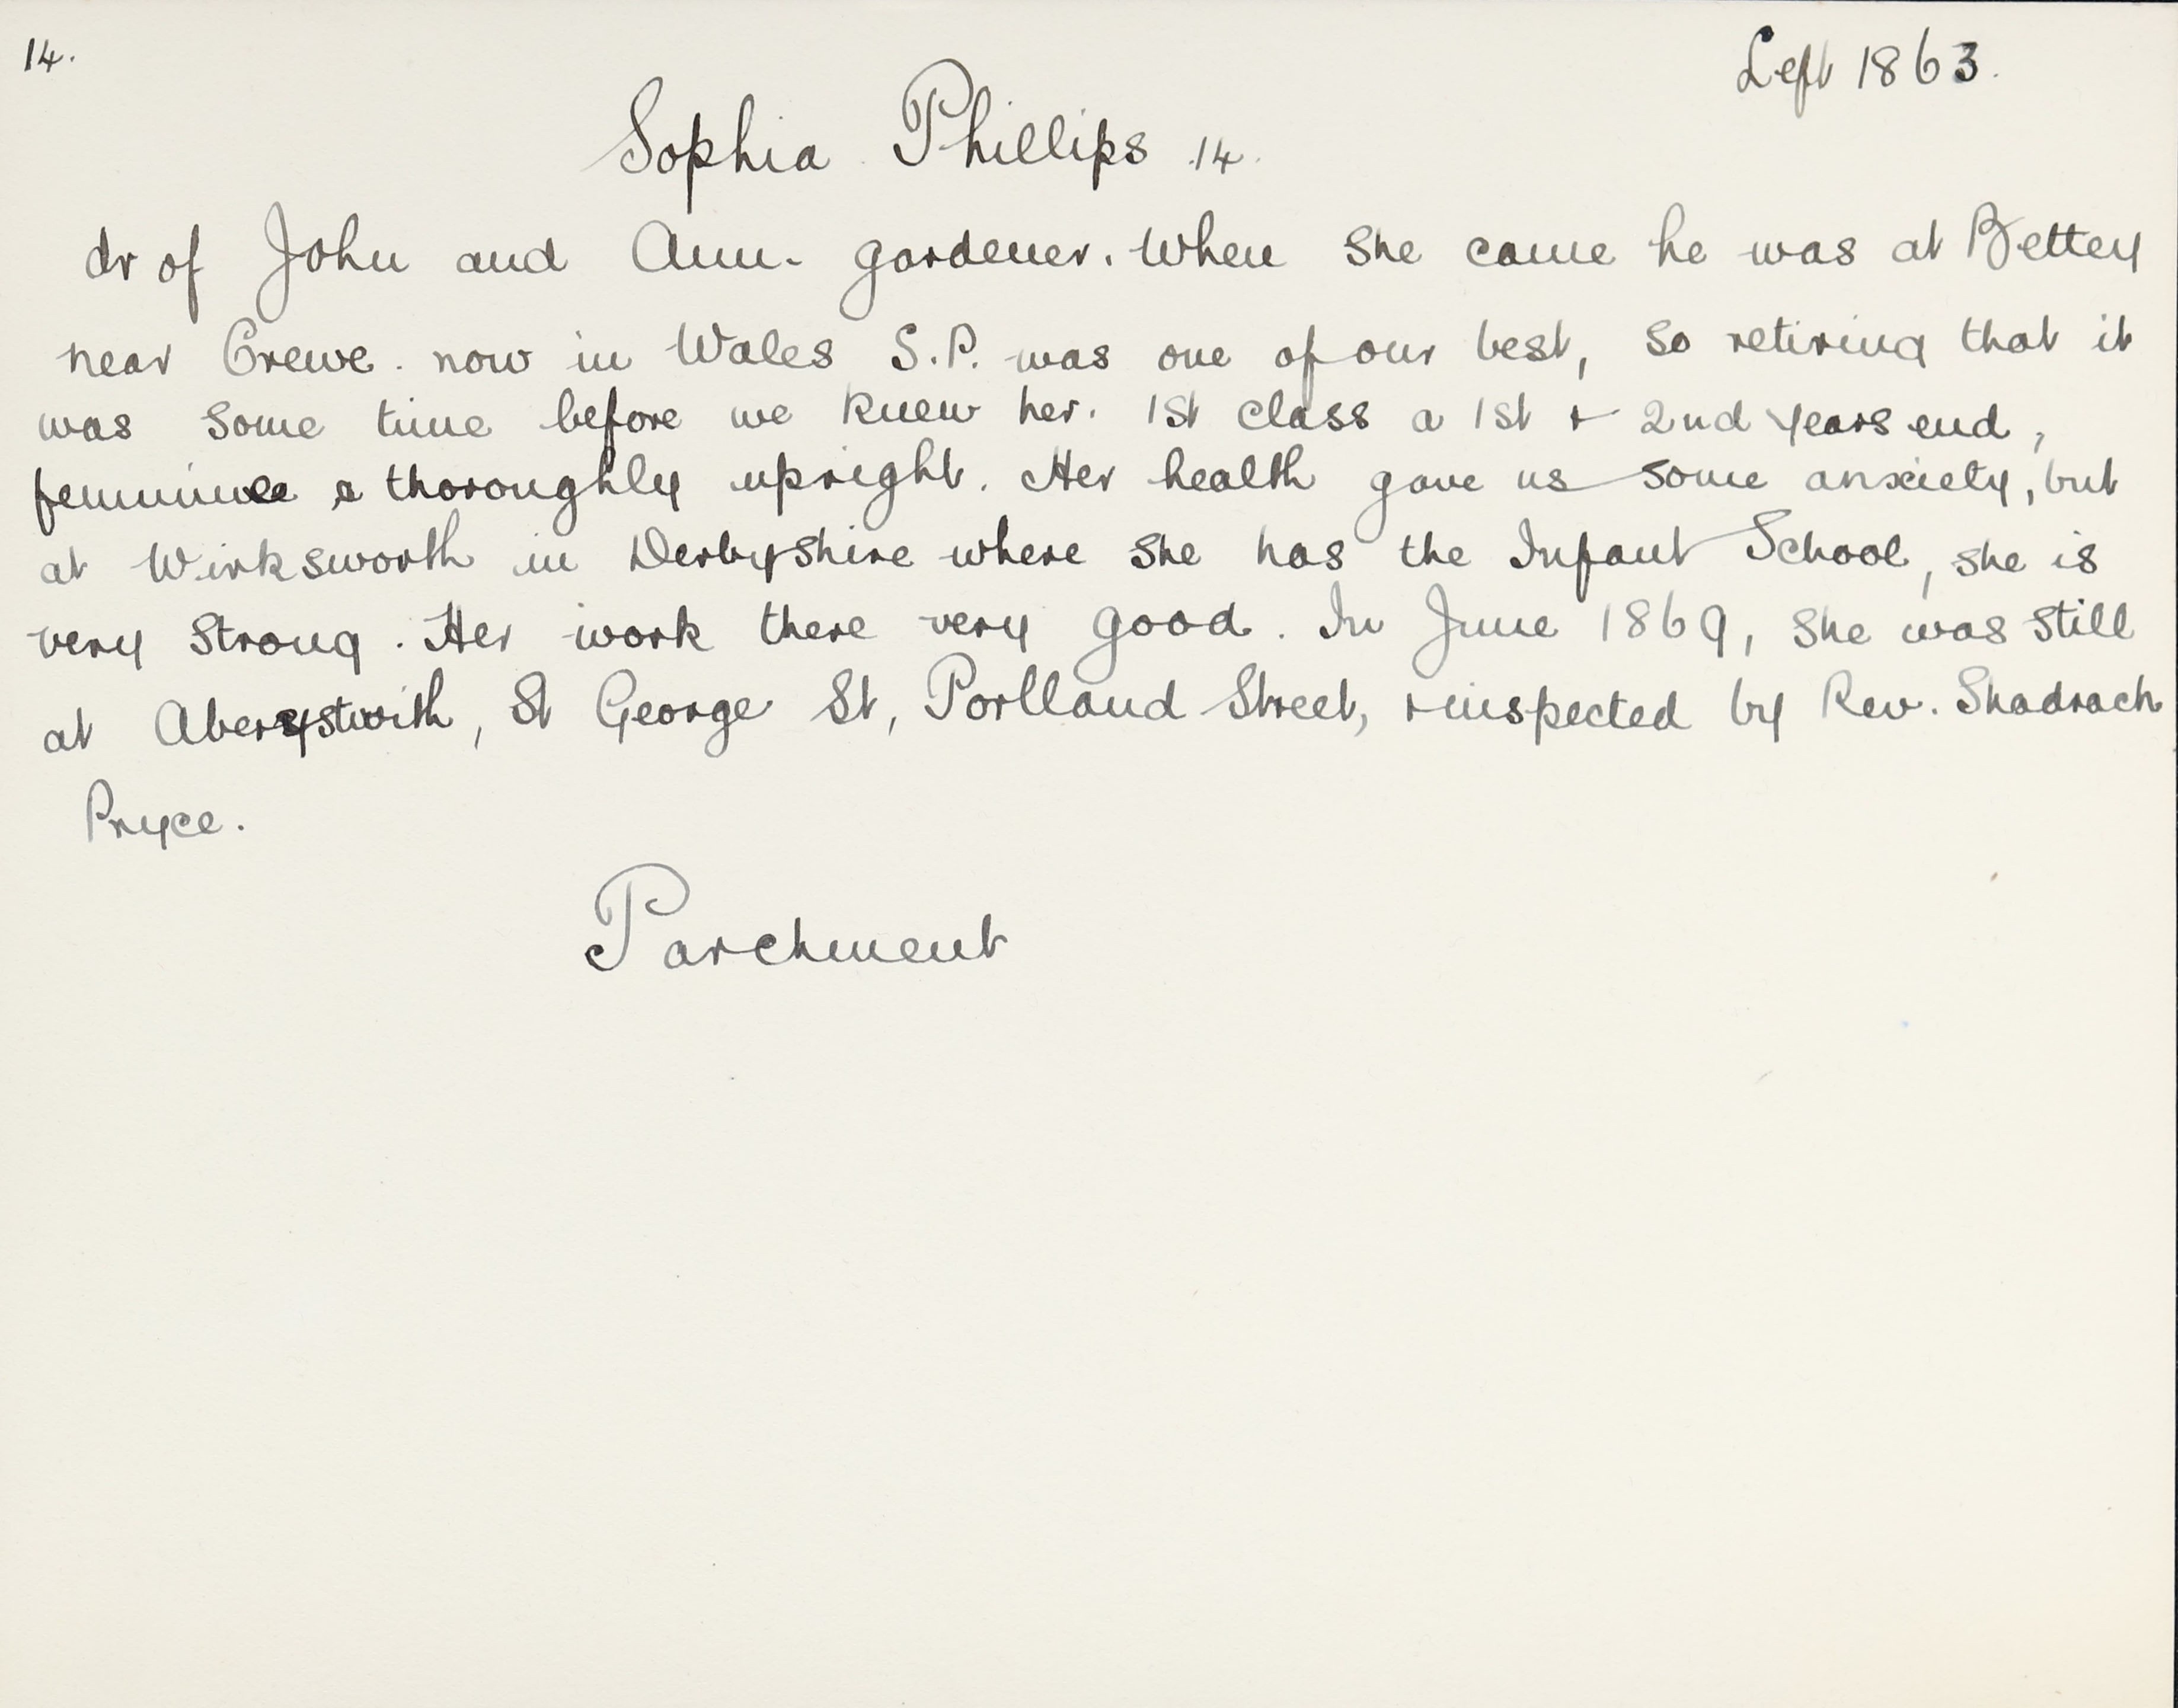 14.
Left 1863.
Sophia Phillips 14.
dr of John and Ann. gardener. When she came he was at Bettey
near Crewe. now in Wales S.P. was one of our best, so retiring that it
was some time before we knew her. 1st class a 1st + 2nd years end,
feminine & thoroughly upright. Her health gave us some anxiety, but
at Wirksworth in Derbyshire where she has the Infant School, she is
very strong. Her work there very good. In June 1869, she was still
at Aberystwith, St George St, Portland Street, + inspected by Rev. Shadrach
Pryce.
Parchment